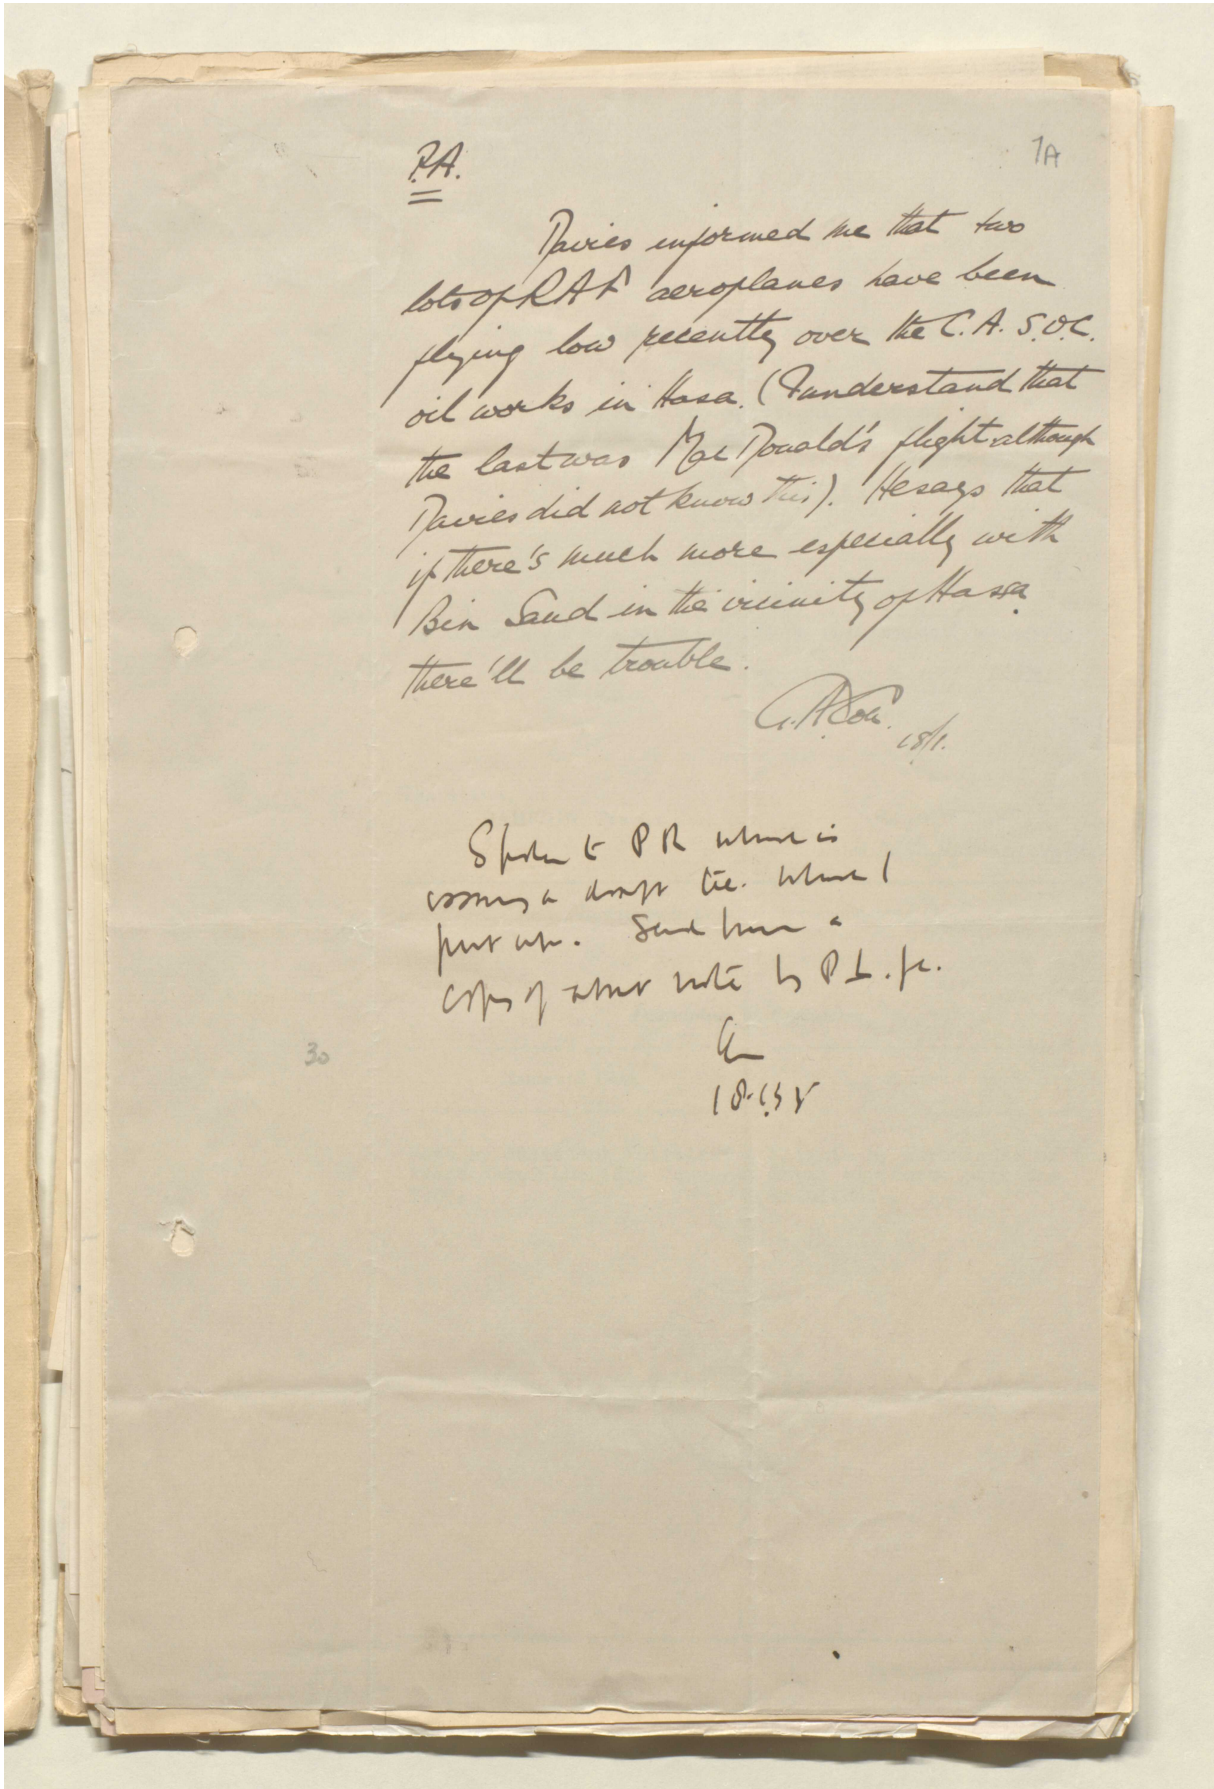 P.A.
7A
Davies informed me that two
lots of RAF aeroplanes have been
flying low recently over the C.A.S.O.C.
oil works in Hasa. (I understand that
the last was MacDonald's flight although
Davies did not know this). He says that
if there's much more especially with
Bin Saud in the vicinity of Hassa
there'll be trouble.
G.A.Cole.
18/1.
Spoken to PR who is
a draft tel.
put up. Send him a
copy of above note by
30